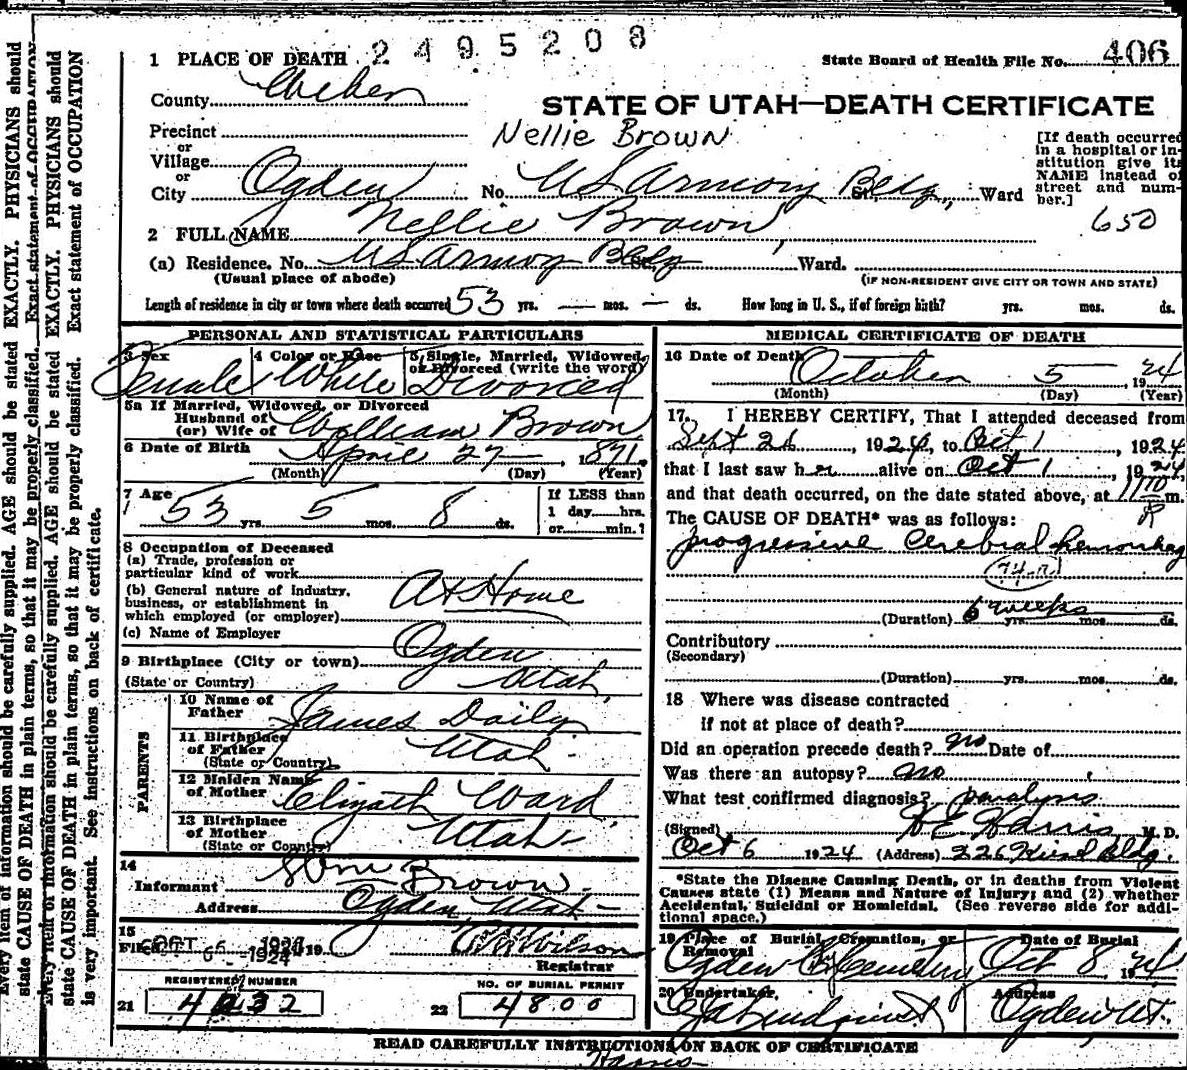 2495208
1 PLACE OF DEATH
State Board of Health File No. 406
County Weber
STATE OF UTAH—DEATH CERTIFICATE
Precinct
or
Village
or
City Ogden No. U S Armory Bldg St., Ward
Nellie Brown
[If death occurred in a hospital or in-
stitution give its
NAME instead of
street and num-
ber.]
650
2 FULL NAME Nellie Brown
(a) Residence. No. U S Armory Bldg St. Ward.
(Usual place of abode)
(IF NON-RESIDENT GIVE CITY OR TOWN AND STATE)
Length of residence in city or town where death occurred 53 yrs. — mos. — ds. How long in U. S., if of foreign birth? yrs. mos. ds.
PERSONAL AND STATISTICAL PARTICULARS
3 Sex
Female
4 Color or Race
White
5 Single, Married, Widowed,
or Divorced (write the word)
Divorced
5a If Married, Widowed, or Divorced
Husband of
(or) Wife of William Brown
6 Date of Birth April 27 — , 1871
(Month) (Day) (Year)
7 Age
53 yrs. 5 mos. 8 ds.
If LESS than
1 day hrs.
or min.?
8 Occupation of Deceased
(a) Trade, profession or
particular kind of work
(b) General nature of industry,
business, or establishment in
which employed (or employer)
At Home
(c) Name of Employer
9 Birthplace (City or town) Ogden
(State or Country) Utah
PARENTS
10 Name of
Father James Daily
11 Birthplace
of Father
(State or Country) Utah
12 Maiden Name
of Mother Elizath Ward
13 Birthplace
of Mother
(State or Country) Utah
14
Informant Brown
Address Ogden, Utah
15
Filed OCT 1924 19
Wilson
Registrar
REGISTERED NUMBER
21
NO. OF BURIAL PERMIT
22 4800
MEDICAL CERTIFICATE OF DEATH
16 Date of Death October 5 , 1924
(Month) (Day) (Year)
17. I HEREBY CERTIFY, That I attended deceased from
Sept 26 , 1924, to Oct 1 , 1924
that I last saw her alive on Oct 1 , 1924,
and that death occurred, on the date stated above, at m.
The CAUSE OF DEATH* was as follows:
progressive Cerebral hemorrhag
(Duration) 6 weeks yrs. mos. ds.
Contributory
(Secondary)
(Duration) yrs. mos. ds.
18 Where was disease contracted
if not at place of death?
Did an operation precede death? no Date of
Was there an autopsy? no
What test confirmed diagnosis? paralysis
(Signed) H E Harris M. D.
Oct 6 1924 (Address) 226 Kiesel bldg.
*State the Disease Causing Death, or in deaths from Violent
Causes state (1) Means and Nature of Injury; and (2) whether
Accidental, Suicidal or Homicidal. (See reverse side for addi-
tional space.)
19 Place of Burial, Cremation, or
Removal
Ogden City Cemetery
Date of Burial
Oct 8, 1924
20 Undertaker,
Lindquist
Address
Ogden Ut.
READ CAREFULLY INSTRUCTIONS ON BACK OF CERTIFICATE
Harris
Every item of information should be carefully supplied. AGE should be stated EXACTLY. PHYSICIANS should
state CAUSE OF DEATH in plain terms, so that it may be properly classified. Exact statement of OCCUPATION
is very important. See instructions on back of certificate.